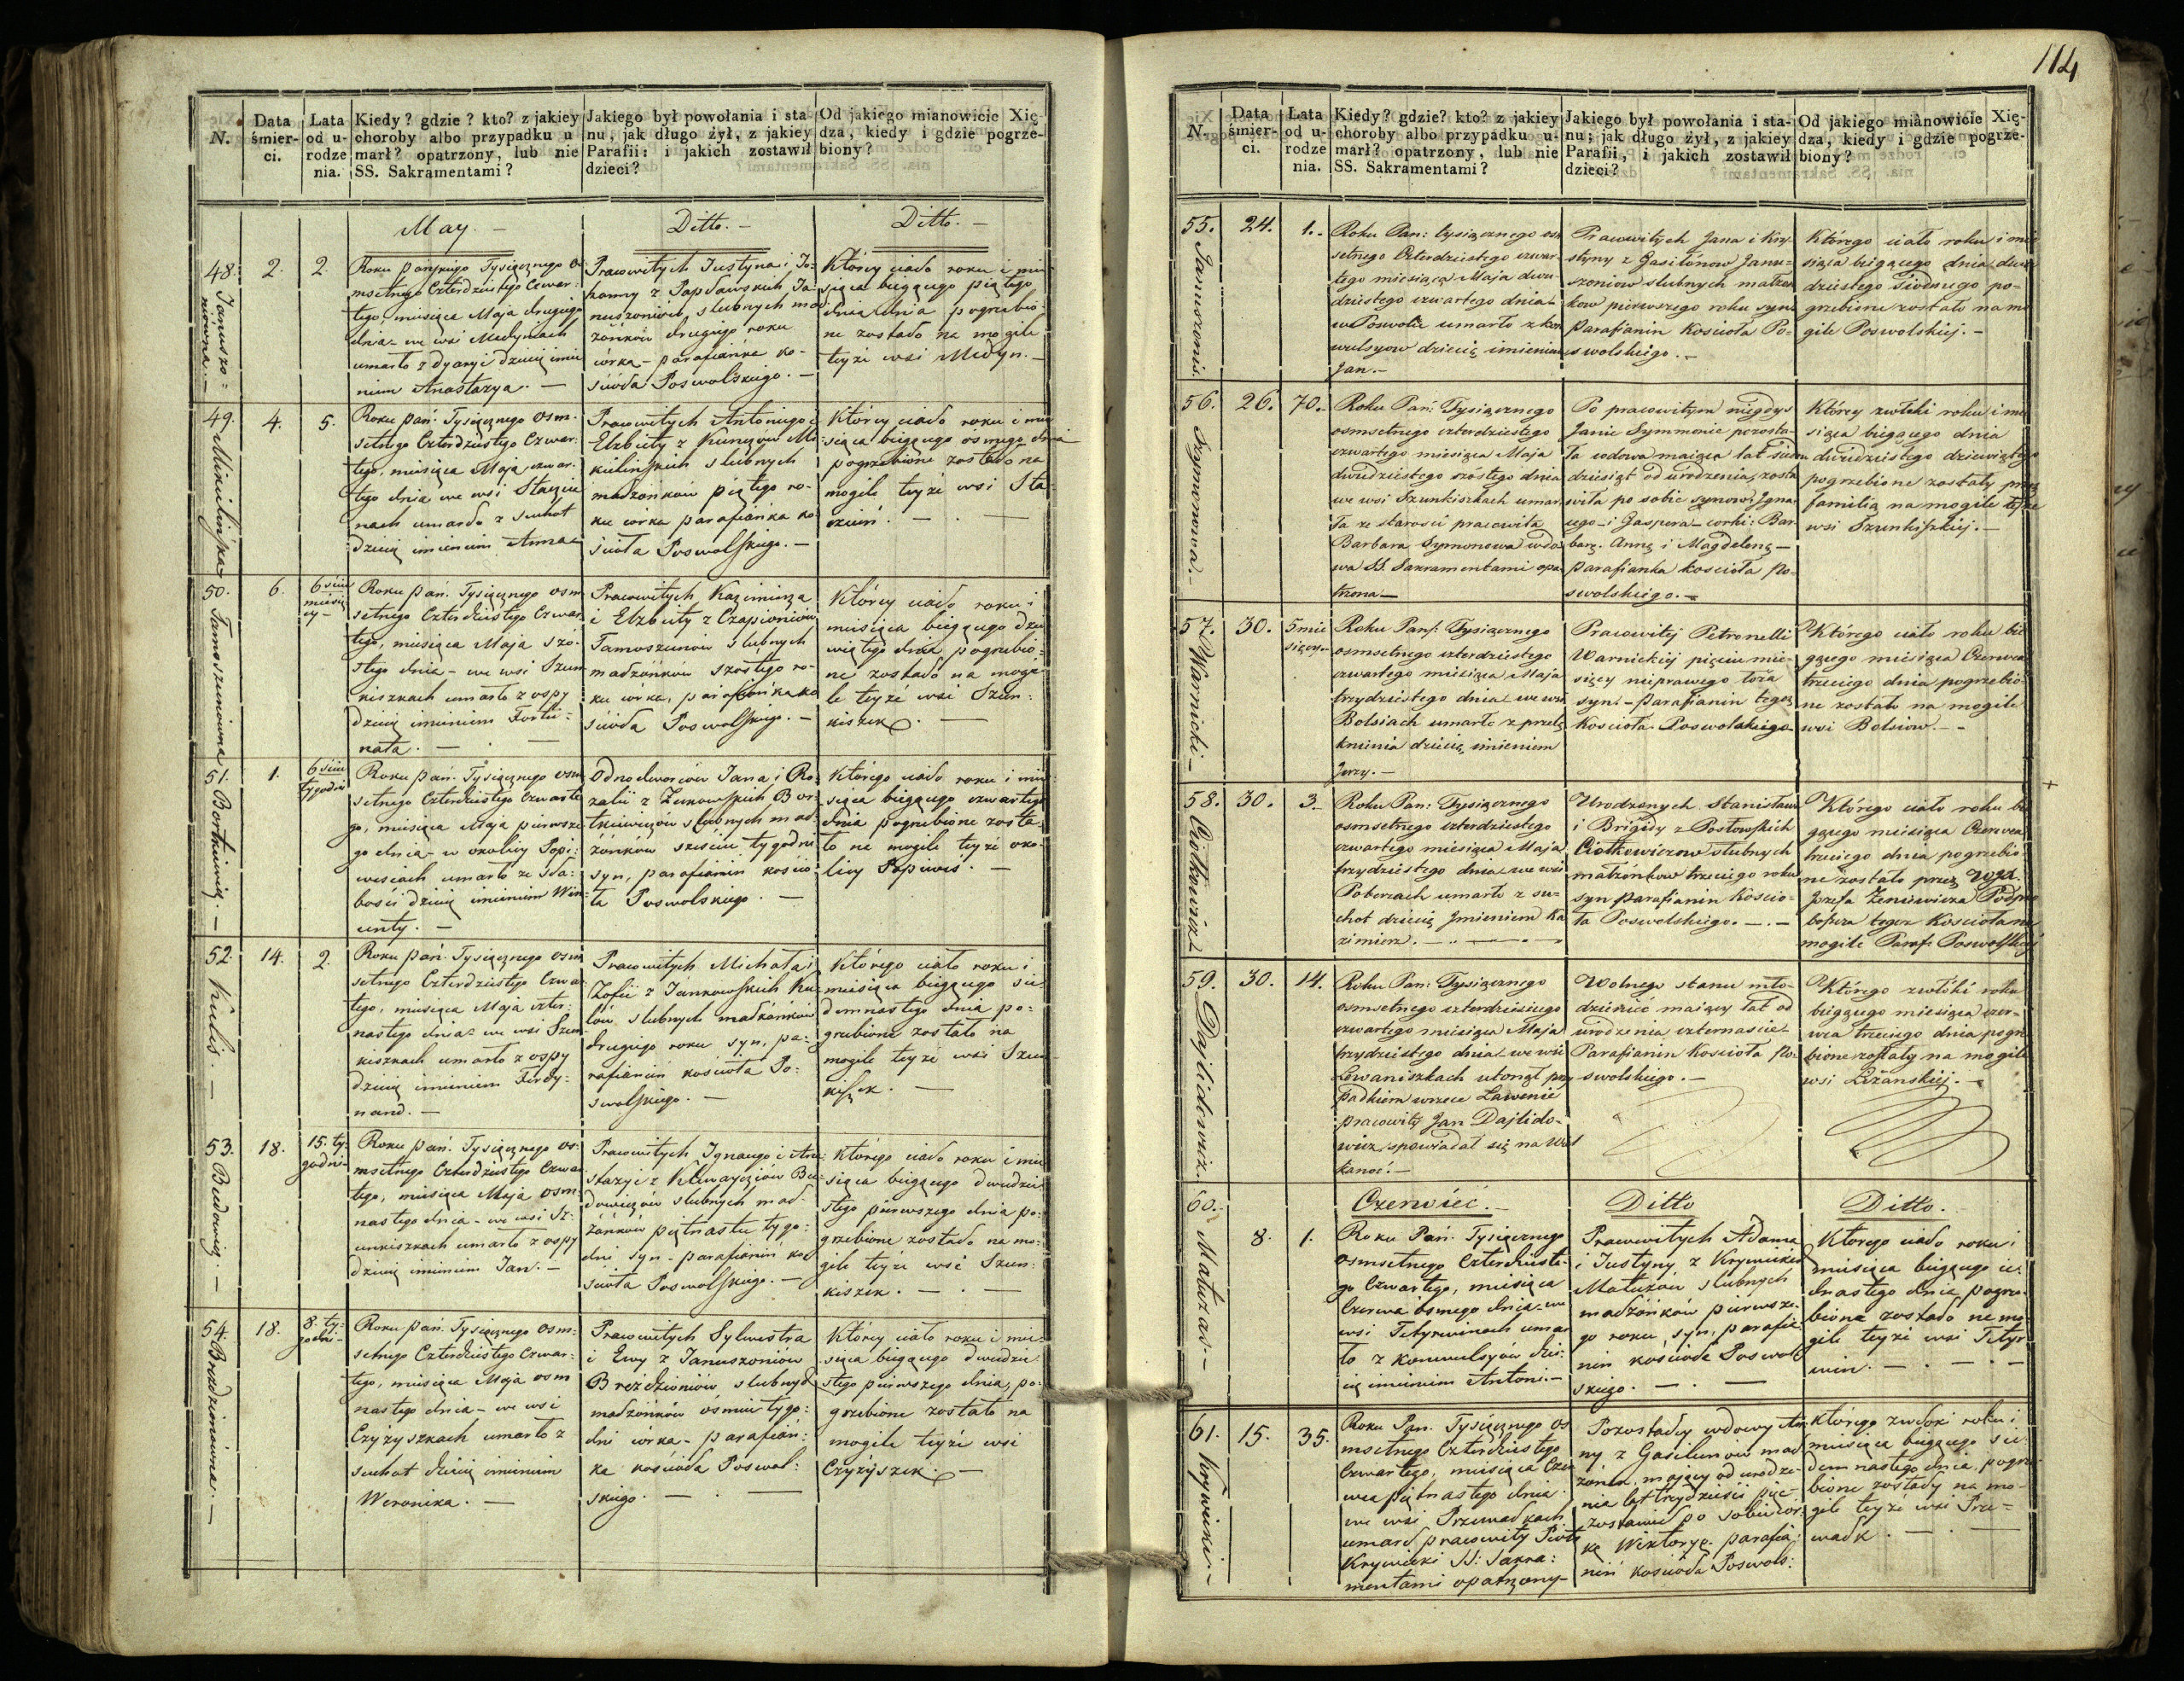 N.
Data śmierci.
Lata od urodzenia.
Kiedy? gdzie? kto? z jakiey
choroby albo przypadku u-
marł? opatrzony, lub nie
SS. Sakramentami?
Jakiego był powołania i sta-
nu, jak długo żył, z jakiey
Parafii: i jakich zostawił
dzieci?
Od jakiego mianowicie Xię-
dza, kiedy i gdzie pogrze-
biony?
May. —
Ditto. —
Ditto. —
48. Januszo=
nuwna. —
2.
2.
Roku pańskiego Tysiącznego O-
msetnego Czterdziestego Czwar-
tego, miesiąca Maja drugiego
dnia — we wsi Medyniach
umarło z dyaryi dziecię imie
niem Anastazya. —
Pracowitych Justyna i Jo-
hanny z Ja-
nuszoniow, slubnych mał
żonków drugiego roku
córka — parafianka ko-
ścioła Poswolskiego. —
Którey ciało roku i mie
siąca biegącego piątego
dnia pogrzebio
ne zostało na mogile
teyże wsi Medyn. —
49. Mikulińska
4.
5.
Roku pań. Tysiącznego Osm-
setnego Czterdziestego Czwar-
tego, miesiąca Maja czwar-
tego dnia we wsi Stacziu
nach umarło z suchot
dziecię imieniem Anna
Pracowitych Antoniego i
Elzbiety z Mi-
kulińskich slubnych
małżonków piątego ro-
ku córka parafianka ko
ścioła Poswolskiego. —
Którey ciało roku i mie
siąca biegącego osmego dnia
pogrzebione zostało na
mogile teyże wsi Sta-
cziun. —
50. Tamoszuniowna
6.
6ściu
miesię
cy —
Roku pań. Tysiącznego Osm
setnego Czterdziestego Czwar
tego, miesiąca Maja szó-
stego dnia — we wsi Szun
kiszkach umarło z ospy
dziecię imieniem Fortu=
nata. —
Pracowitych Kazimierza
i Elzbiety z Czapioniow
Tamoszuniow slubnych
małżonków szostego ro-
ku córka, parafianka ko
ścioła Poswolskiego. —
Którey ciało roku i
miesiąca biegącego dzie
wiątego dnia pogrzebio-
ne zostało na mogi-
le teyże wsi Szun-
kiszek. —
51. Bortkiewicz. —
1.
6ściu
tygodni
Roku pań. Tysiącznego Osm
setnego Czterdziestego Czwarte
go, miesiąca Maja pierwsze
go dnia — w okolicy Popi-
wesiach umarło ze sła-
bości dziecię imieniem Win-
centy. —
Odnodworców Jana i Ro-
zalii z Żukowskich Bor-
tkiewiczów slubnych mał-
żonków sześciu tygodni
syn, parafianin kościo-
ła Poswolskiego. —
Którego ciało roku i mie
siąca biegącego czwartego
dnia pogrzebione zosta-
ło na mogile teyże oko-
licy Popiwes. —
52. Kulis. —
14.
2.
Roku pań. Tysiącznego Osm
setnego Czterdziestego Czwar
tego, miesiąca Maja czter-
nastego dnia we wsi Szun
kiszkach umarło z ospy
dziecię imieniem Ferdy-
nand. —
Pracowitych Michała i
Zofii z Jankowskich Ku-
lów slubnych małżonków
drugiego roku syn, pa-
rafianin kościoła Po-
swolskiego. —
Którego ciało roku i
miesiąca biegącego sie-
demnastego dnia po-
grzebione zostało na
mogile teyże wsi Szun
kiszek. —
53. Budowicz. —
18.
15. ty-
godni
Roku pań. Tysiącznego Os-
msetnego Czterdziestego Czwar
tego, miesiąca Maja Osm-
nastego dnia — we wsi Sz-
unkiszkach umarło z ospy
dziecię imieniem Jan. —
Pracowitych Ignacego i Ana-
stazyi z Bu-
dowiczów slubnych mał-
żonków piętnastu tygo-
dni syn — parafianin ko
ścioła Poswolskiego. —
Którego ciało roku i mie
siąca biegącego dwudzie-
stego pierwszego dnia po-
grzebione zostało na mo-
gile teyże wsi Szun-
kiszek. —
54. Brożdzioniowna. —
18.
8. ty-
godni
Roku pań. Tysiącznego Osm-
setnego Czterdziestego Czwar-
tego, miesiąca Maja Osm
nastego dnia — we wsi
Czyżyszkach umarło z
suchot dziecię imieniem
Weronika. —
Pracowitych Sylwestra
i Ewy z Januszoniów
Breżdzioniów slubnych
małżonków ósmiu tygo-
dni córka — parafian-
ka kościoła Poswol-
skiego. —
Którey ciało roku i mie-
siąca biegącego dwudzie
stego pierwszego dnia, po-
grzebione zostało na
mogile teyże wsi
Czyżyszek. —
114
N.
Data śmierci.
Lata od urodzenia.
Kiedy? gdzie? kto? z jakiey
choroby albo przypadku u-
marł? opatrzony, lub nie
SS. Sakramentami?
Jakiego był powołania i sta-
nu; jak długo żył, z jakiey
Parafii, i jakich zostawił
dzieci?
Od jakiego mianowicie Xię-
dza, kiedy i gdzie pogrze-
biony?
55. Januszonis.
24.
1. —
Roku Pan: tysiącznego osm
setnego Czterdziestego czwar-
tego miesiąca Maja dwu-
dziestego czwartego dnia —
w Poswolu umarło z kon
wulsyow dziecię imieniem
Jan. —
Pracowitych Jana i Kry-
styny z Gasilunow Janu-
szoniow slubnych małżon
kow pierwszego roku syn
parafianin kościoła Po-
swolskiego. —
Którego ciało roku i mie
siąca biegącego dnia dwu
dziestego siodmego po-
grzebione zostało na mo
gile Poswolskiej. —
56. Szymonowa. —
26.
70. —
Roku Pań: Tysiącznego
osmsetnego czterdziestego
czwartego miesiąca Maja
dwudziestego szóstego dnia
we wsi Szunkiszkach umar
ła ze starości pracowita
Barbara Symonowa wdo
wa SS. Sakramentami opa
trzona —
Po pracowitym niegdyś
Janie Symmonie pozosta-
ła wdowa maiąca lat siedm
dziesiąt od urodzenia, zosta
wiła po sobie synow Igna
cego i Gaspera — corki: Bar
barę. Annę i Magdelenę —
parafianka kościoła Po-
swolskiego. —
Którey zwłoki roku i mie
siąca bieżącego dnia
dwudziestego dziewiątego
pogrzebione zostały przez
familią na mogile teyże
wsi Szunkiszkiej. —
57. Warnicki —
30.
5 mie
sięcy —
Roku Pań: Tysiącznego
osmsetnego czterdziestego
czwartego miesiąca Maja
trzydziestego dnia we wsi
Bolsiach umarło z przelę
knienia dziecię imieniem
Jerzy. —
Pracowitej Petronelli
Warnickiej pięciu mie-
sięcy nieprawego łoża
syn. — Parafianin tegoż
Kościoła Poswolskiego
Którego ciało roku bie
gącego miesiąca Czerwca
trzeciego dnia pogrzebio
ne zostało na mogile
wsi Bolsiow. —
58. Ciołkowicz
30.
3. —
Roku Pan: Tysiącznego
osmsetnego czterdziestego
czwartego miesiąca Maja
trzydziestego dnia we wsi
Poberzach umarło z su-
chot dziecię Jmieniem Ka
zimierz. —
Urodzonych Stanisława
i Brigidy z Postowskich
Ciołkowiczow slubnych
małżonkow trzeciego roku
syn parafianin Kościo-
ła Poswolskiego. —
Którego ciało roku bie
gącego miesiąca Czerwca
trzeciego dnia pogrzebio
ne zostało przez
Jozefa Zeniewicza
tegoż Kościoła na
mogile Paraf: Poswolskiej
59. Dajlidowicz.
30.
14.
Roku Pan: Tysiącznego
osmsetnego czterdziestego
czwartego miesiąca Maja
trzydziestego dnia — we wsi
Lewaniszkach utonął przy
padkiem w rzece Ławenie
pracowity Jan Dajlido-
wicz, spowiadał się na Wiel
kanoc. —
Wolnego stanu mło-
dzieniec maiący lat od
urodzenia czternaście
Parafianin Kościoła Po-
swolskiego. —
Którego zwłoki roku
bieżącego miesiąca czer-
wca trzeciego dnia pogrze
bione zostały na mogile
wsi
60. Matuzas. —
Czerwiec. —
Ditto
Ditto. —
8.
1.
Roku Pań. Tysiącznego
Osmsetnego Czterdzieste-
go Czwartego, miesiąca
Czerwca osmego dnia we
wsi Tetyrwinach umar
ło z konwulsyow dzie-
cię imieniem Antoni. —
Pracowitych Adama
i Justyny z Krywickich
Matuzów slubnych
małżonków pierwsze
go roku, syn, parafia
nin kościoła Poswol
skiego. —
Którego ciało roku i
miesiąca biegącego ie-
dnastego dnia pogrze
bione zostało na mo
gile teyże wsi Tetyr
win. —
61. Krywicki. —
15.
35.
Roku Pan. Tysiącznego Os
msetnego Czterdziestego
Czwartego, miesiąca Czer
wca piętnastego dnia
we wsi Przewadkach
umarł pracowity Piotr
Krywicki SS: Sakra-
mentami opatrzony —
Pozostałey wdowy An
ny z Gasilunow mał
żonek, maiący od urodze-
nia lat trzydzieści pięć
zostawił po sobie cór
kę Wiktoryę. parafia-
nin kościoła Poswols:
Którego zwłoki roku i
miesiąca biegącego sie-
dem nastego dnia pogrze
bione zostały na mo-
gile teyże wsi Prze-
wadk. —